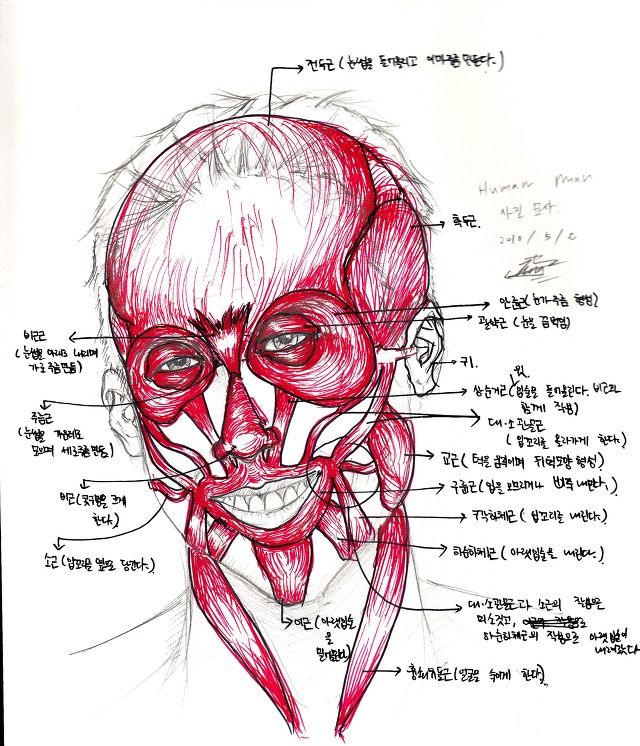 전두근 (눈썹을 들어올리고 이마주름 만든다.)
Human Man
사진 묘사.
2010 / 5 / 2
측두근.
안륜근 (눈가주름 형성)
(눈을 깜박임)
귀.
비근근
(눈썹을 아래로 내리며
가로주름만듦)
윗
상순거근 (입술을 들어올린다. 비근과
함께 작용)
대·소관골근
(입꼬리를 올라가게 한다.)
추미근
(눈썹을 가운데로
모으며 세로주름만듦)
교근 (턱을 움직이며 형성)
구륜근 (입을 오므리거나 내민다.)
비근 (콧구멍을 크게
한다.)
구각하체근 (입꼬리를 내린다.)
소근 (입꼬리를 옆으로 당긴다.)
하순하체근 (아랫입술을 내린다.)
이근 (아랫입술
을
밀어올린다)
대·소관골근과 소근의 작용으로
미소짓고,
하순하체근의 작용으로 아랫입술이
내려갔다
흉쇄유돌근 (얼굴을 숙이게 한다)